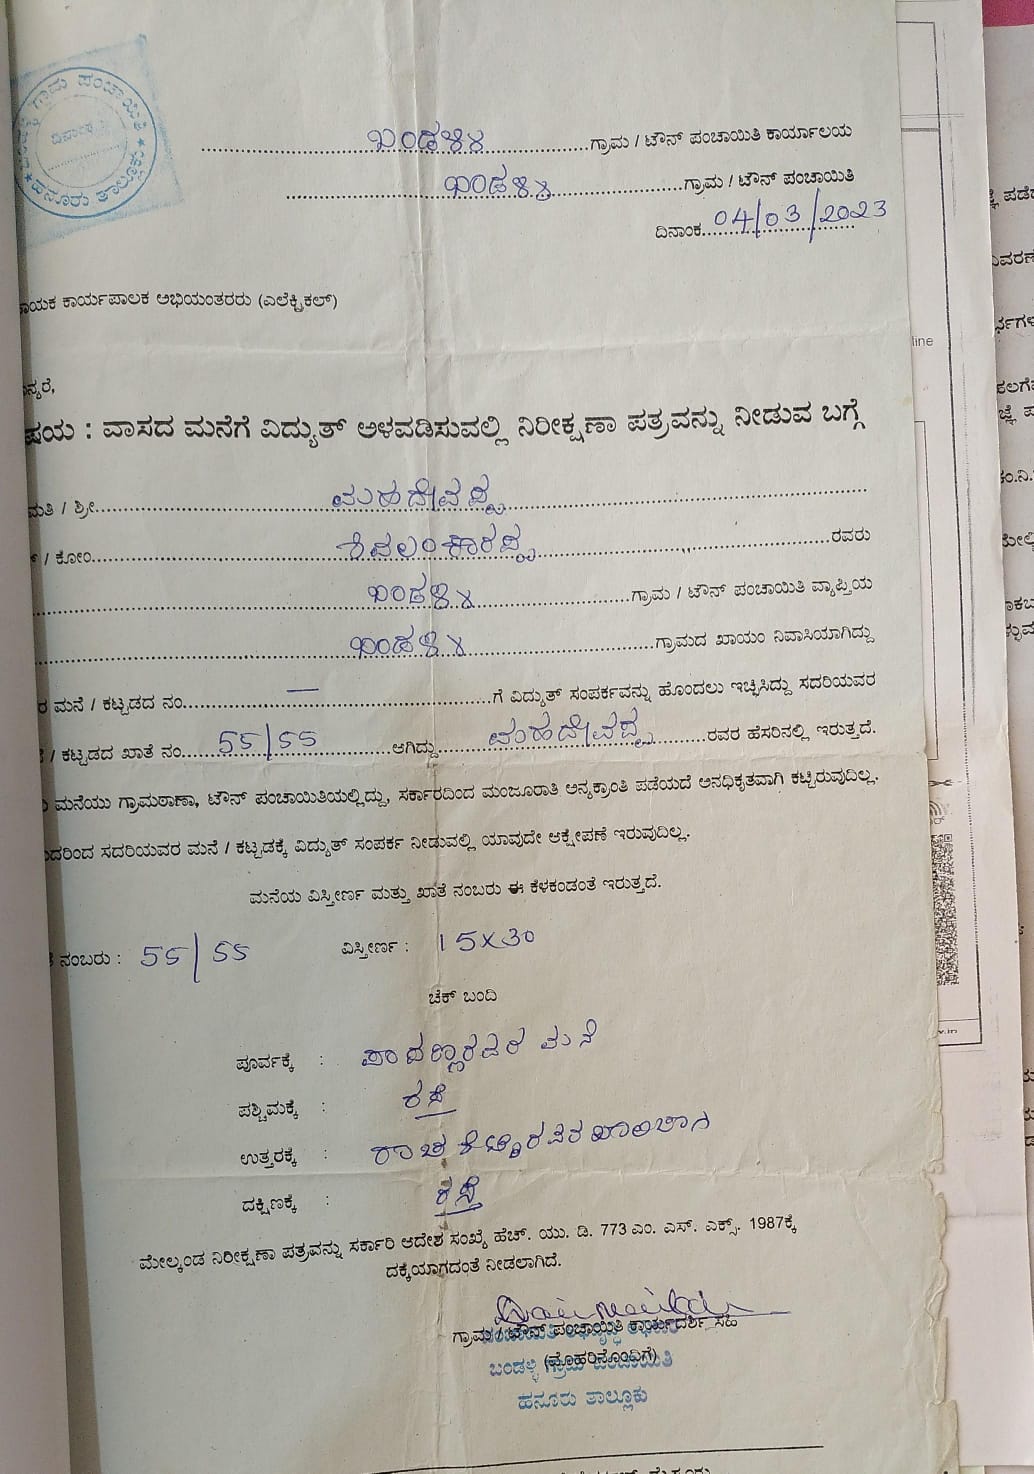 ಗ್ರಾಮ ಪಂಚಾಯಿತಿ
ದಿನಾಂಕ
ಹನೂರು ತಾಲ್ಲೂಕು
ಬಂಡಳ್ಳಿ ಗ್ರಾಮ / ಟೌನ್ ಪಂಚಾಯಿತಿ ಕಾರ್ಯಾಲಯ
ಬಂಡಳ್ಳಿ ಗ್ರಾಮ / ಟೌನ್ ಪಂಚಾಯಿತಿ
ದಿನಾಂಕ 04/03/2023
ಾಯಕ ಕಾರ್ಯಪಾಲಕ ಅಭಿಯಂತರರು (ಎಲೆಕ್ಟ್ರಿಕಲ್)
ನ್ಯರೆ,
ಷಯ : ವಾಸದ ಮನೆಗೆ ವಿದ್ಯುತ್ ಅಳವಡಿಸುವಲ್ಲಿ ನಿರೀಕ್ಷಣಾ ಪತ್ರವನ್ನು ನೀಡುವ ಬಗ್ಗೆ
ಮತಿ / ಶ್ರೀ ಮಹದೇವಪ್ಪ
/ ಕೋಂ ಶಿವಲಂಕಾರಪ್ಪ ರವರು
ಬಂಡಳ್ಳಿ ಗ್ರಾಮ / ಟೌನ್ ಪಂಚಾಯಿತಿ ವ್ಯಾಪ್ತಿಯ
ಬಂಡಳ್ಳಿ ಗ್ರಾಮದ ಖಾಯಂ ನಿವಾಸಿಯಾಗಿದ್ದು
ರ ಮನೆ / ಕಟ್ಟಡದ ನಂ. — ಗೆ ವಿದ್ಯುತ್ ಸಂಪರ್ಕವನ್ನು ಹೊಂದಲು ಇಚ್ಛಿಸಿದ್ದು ಸದರಿಯವರ
/ ಕಟ್ಟಡದ ಖಾತೆ ನಂ. 55/55 ಆಗಿದ್ದು ಮಹದೇವಪ್ಪ ರವರ ಹೆಸರಿನಲ್ಲಿ ಇರುತ್ತದೆ.
ಮನೆಯು ಗ್ರಾಮಠಾಣಾ, ಟೌನ್ ಪಂಚಾಯಿತಿಯಲ್ಲಿದ್ದು, ಸರ್ಕಾರದಿಂದ ಮಂಜೂರಾತಿ ಅನ್ಯಕ್ರಾಂತಿ ಪಡೆಯದೆ ಅನಧಿಕೃತವಾಗಿ ಕಟ್ಟಿರುವುದಿಲ್ಲ.
ದರಿಂದ ಸದರಿಯವರ ಮನೆ / ಕಟ್ಟಡಕ್ಕೆ ವಿದ್ಯುತ್ ಸಂಪರ್ಕ ನೀಡುವಲ್ಲಿ ಯಾವುದೇ ಆಕ್ಷೇಪಣೆ ಇರುವುದಿಲ್ಲ.
ಮನೆಯ ವಿಸ್ತೀರ್ಣ ಮತ್ತು ಖಾತೆ ನಂಬರು ಈ ಕೆಳಕಂಡಂತೆ ಇರುತ್ತದೆ.
ನಂಬರು : 55/55 ವಿಸ್ತೀರ್ಣ : 15x30
ಚೆಕ್ ಬಂದಿ
ಪೂರ್ವಕ್ಕೆ : ಮಾದಣ್ಣರವರ ಮನೆ
ಪಶ್ಚಿಮಕ್ಕೆ : ರಸ್ತೆ
ಉತ್ತರಕ್ಕೆ :
ದಕ್ಷಿಣಕ್ಕೆ : ರಸ್ತೆ
ಮೇಲ್ಕಂಡ ನಿರೀಕ್ಷಣಾ ಪತ್ರವನ್ನು ಸರ್ಕಾರಿ ಆದೇಶ ಸಂಖ್ಯೆ ಹೆಚ್. ಯು. ಡಿ. 773 ಎಂ. ಎಸ್. ಎಕ್ಸ್. 1987ಕ್ಕೆ
ದಕ್ಕೆಯಾಗದಂತೆ ನೀಡಲಾಗಿದೆ.
ಗ್ರಾಮ / ಟೌನ್ ಪಂಚಾಯಿತಿ ಕಾರ್ಯದರ್ಶಿ ಸಹಿ
(ಮೊಹರಿನೊಂದಿಗೆ)
ಬಂಡಳ್ಳಿ
ಹನೂರು ತಾಲ್ಲೂಕು
line